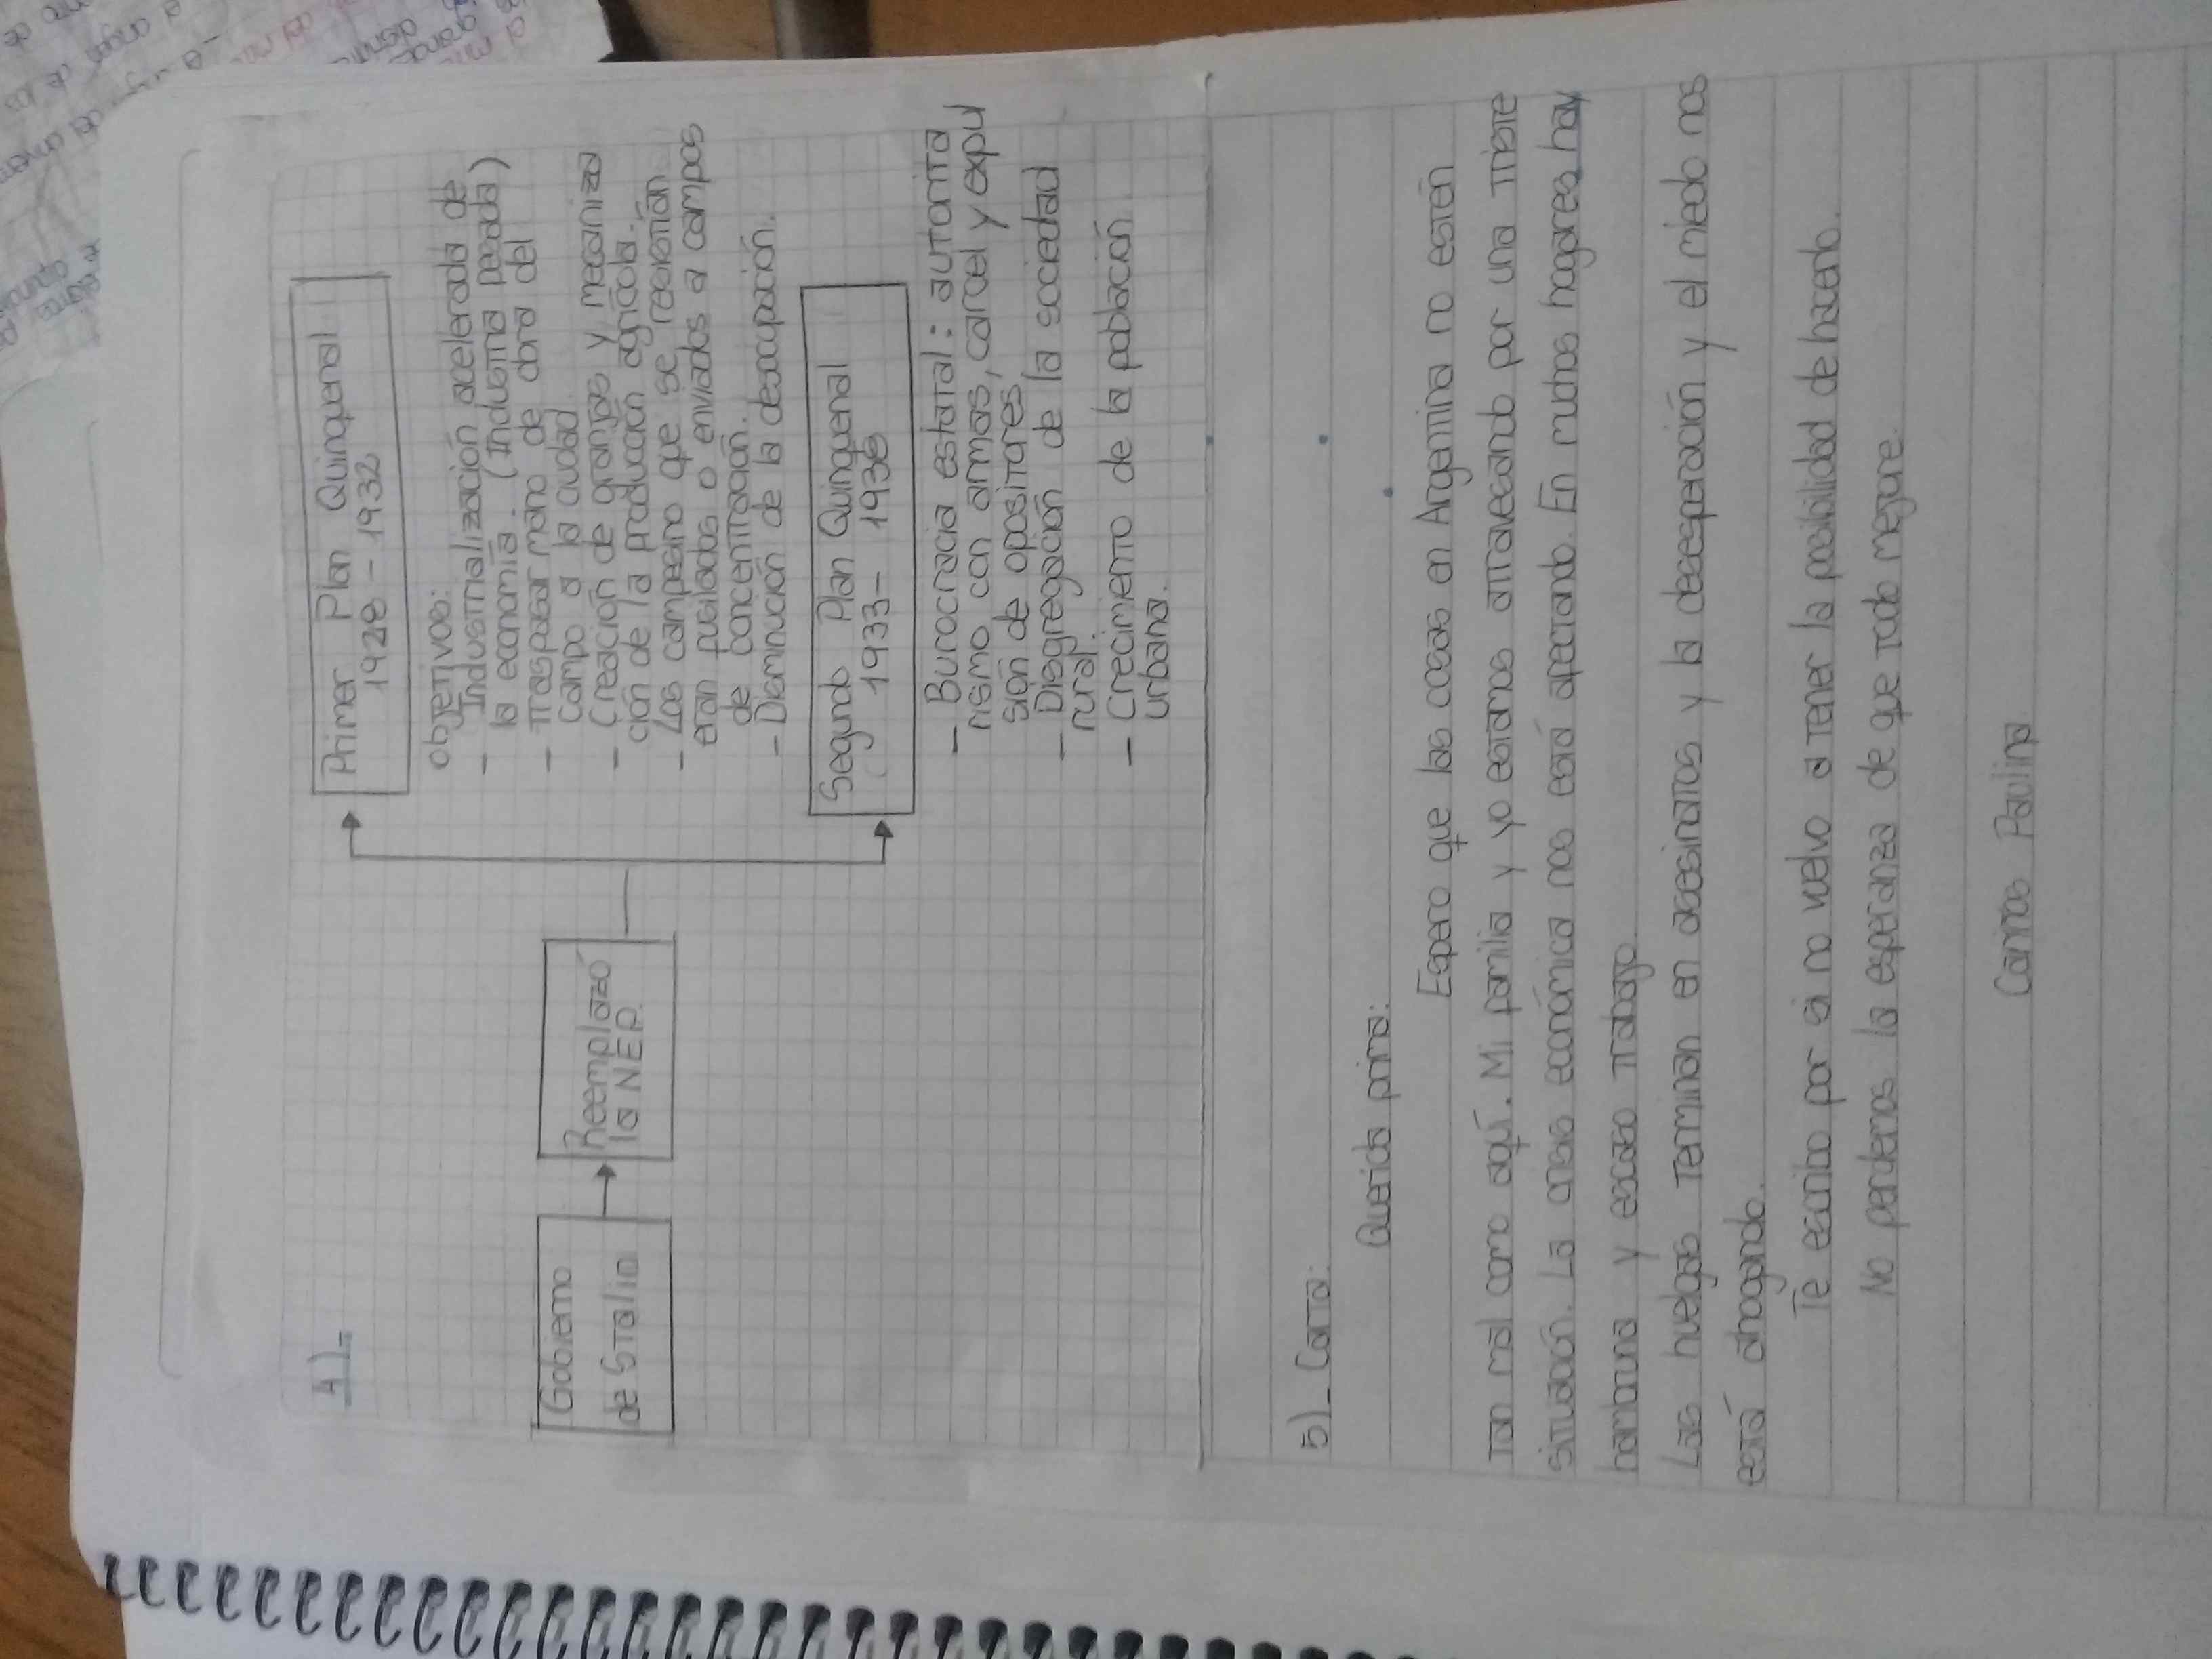 4).=
Gobierno
de Stalin
Reemplazó
la NEP.
Primer Plan Quinquenal
1928 - 1932
Objetivos:
- Industrialización acelerada de
la economía. (Industria pesada)
- Traspasar mano de obra del
campo a la ciudad
- Creación de granjas y mecaniza
ción de la producción agrícola.
- Los campesino que se resistían
eran fusilados o enviados a campos
de concentración.
- Disminución de la desocupación.
Segundo Plan Quinquenal
1933 - 1938
- Burocracia estatal: autorita
rismo con armas, carcel y expul
sión de opositores
- Disgregación de la sociedad
rural.
- Crecimiento de la población
urbana.
5)_ Carta:
Querida prima:
Espero que las cosas en Argentina no estén
tan mal como aquí. Mi familia y yo estamos atravesando por una triste
situación. La crisis económica nos está afectando. En muchos hogares hay
hambruna y escaso trabajo.
Las huelgas terminan en asesinatos y la desesperación y el miedo nos
está ahogando.
Te escribo por si no vuelvo a tener la posibilidad de hacerlo.
No perdemos la esperanza de que todo mejore.
Carinos Paulina